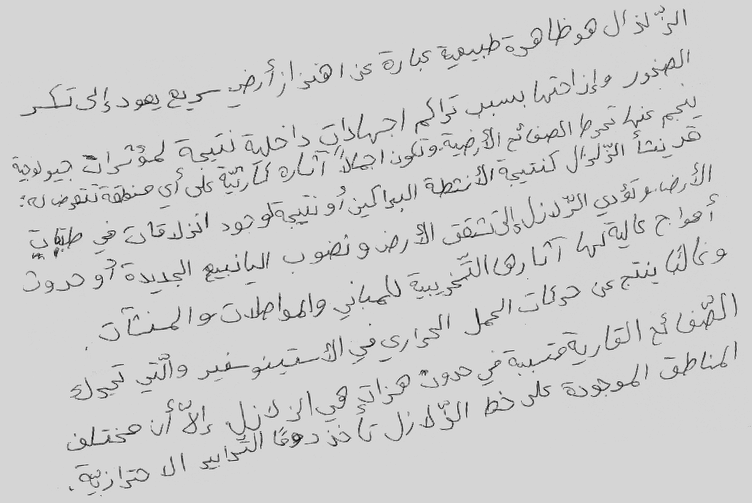 الزّلزال هو ظاهرة طبيعية عبارة عن اهتزاز أرضي سريع يعود إلى تكسر
الصخور وإزاحتها بسبب تراكم اجهادات داخلية نتيجة لمؤثرات جيولوجية
ينجم عنها تحرك الصفائح الأرضية وتكون اجمالاً آثاره كارثيّة على أي منطقة تتعرض له:
قد ينشأ الزلزال كنتيجة الأنشطة البراكين أو نتيجة لوجود انزلاقات في طبقات
الأرض. وتؤدي الزّلازل إلى تشقق الأرض ونضوب الينابيع الجديدة أو حدوث
أمواج عالية لها آثارها التّخريبية للمباني والمواصلات والمنشآت.
وغالبا ينتج عن حركات الحمل الحراري في الأستينوسفير والّتي تحرك
الصّفائح القارية متسببة في حدوث هزات هي الزلازل إلاّ أن مختلف
المناطق الموجودة على خط الزّلازل تأخذ دومًا التّدابير الاحترازيّة.